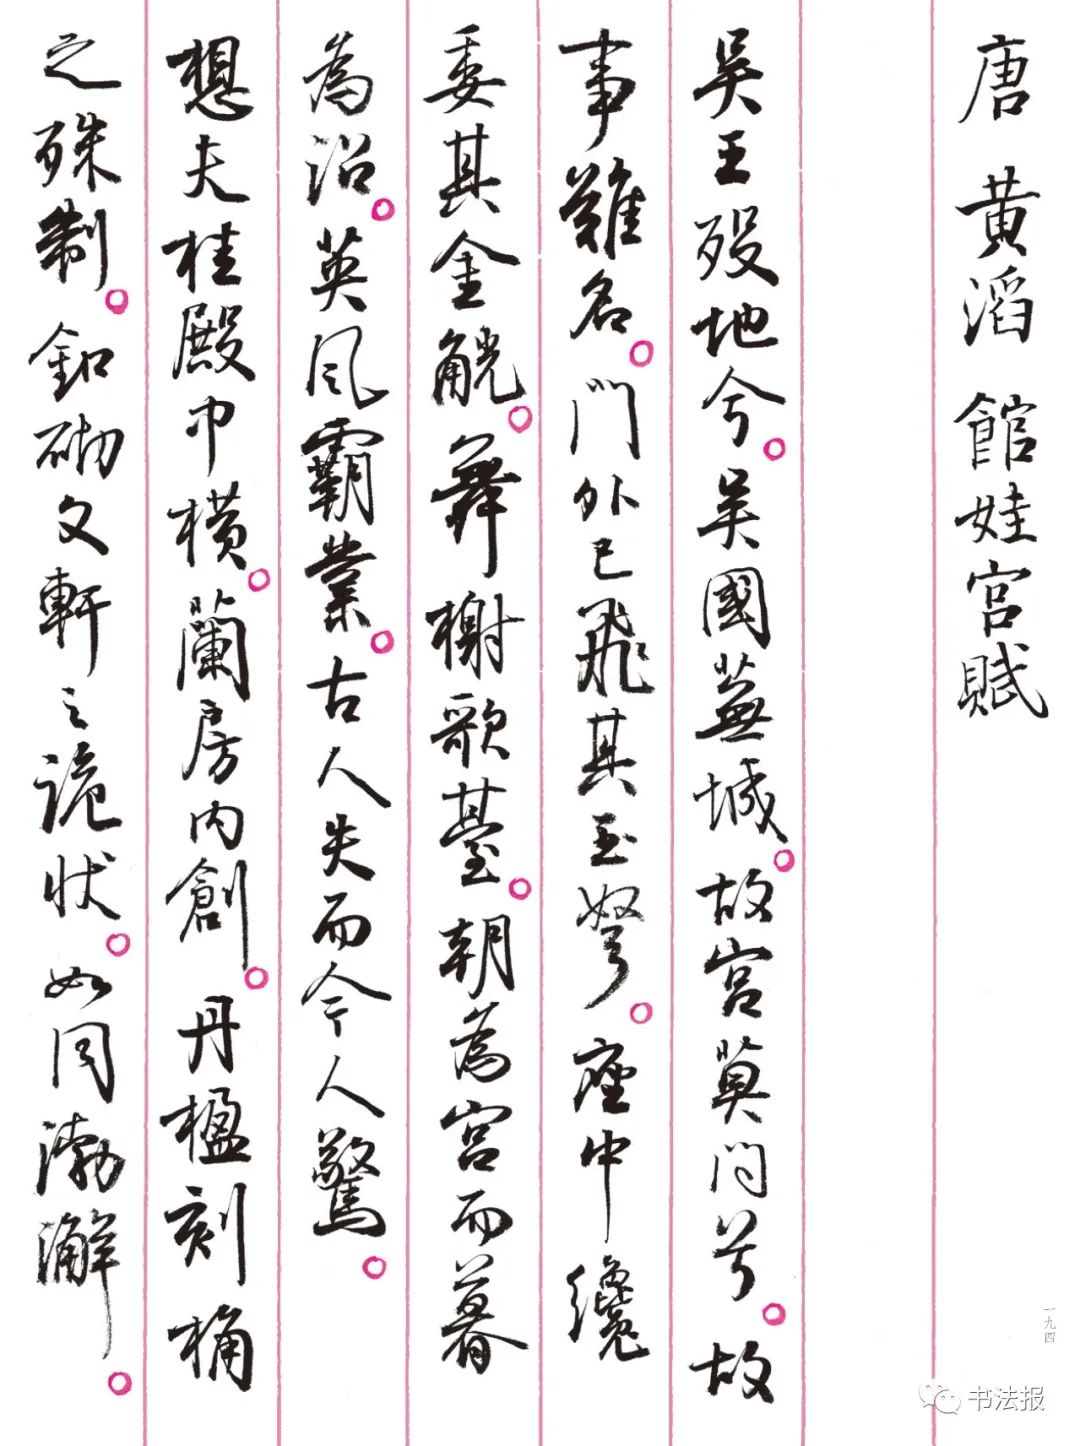 唐 黄滔 館娃宫賦
吴王殁地兮。吴國蕪城。故宫莫問兮。故
事難名。門外已飛其玉弩。座中纔
委其金觥。舞榭歌臺。朝為宫而暮
為沼。英風霸業。古人失而今人驚。
想夫桂殿中横。蘭房内創。丹楹刻桷
之殊制。釦砌文軒之詭状。如同渤澥。
一九四
书法报